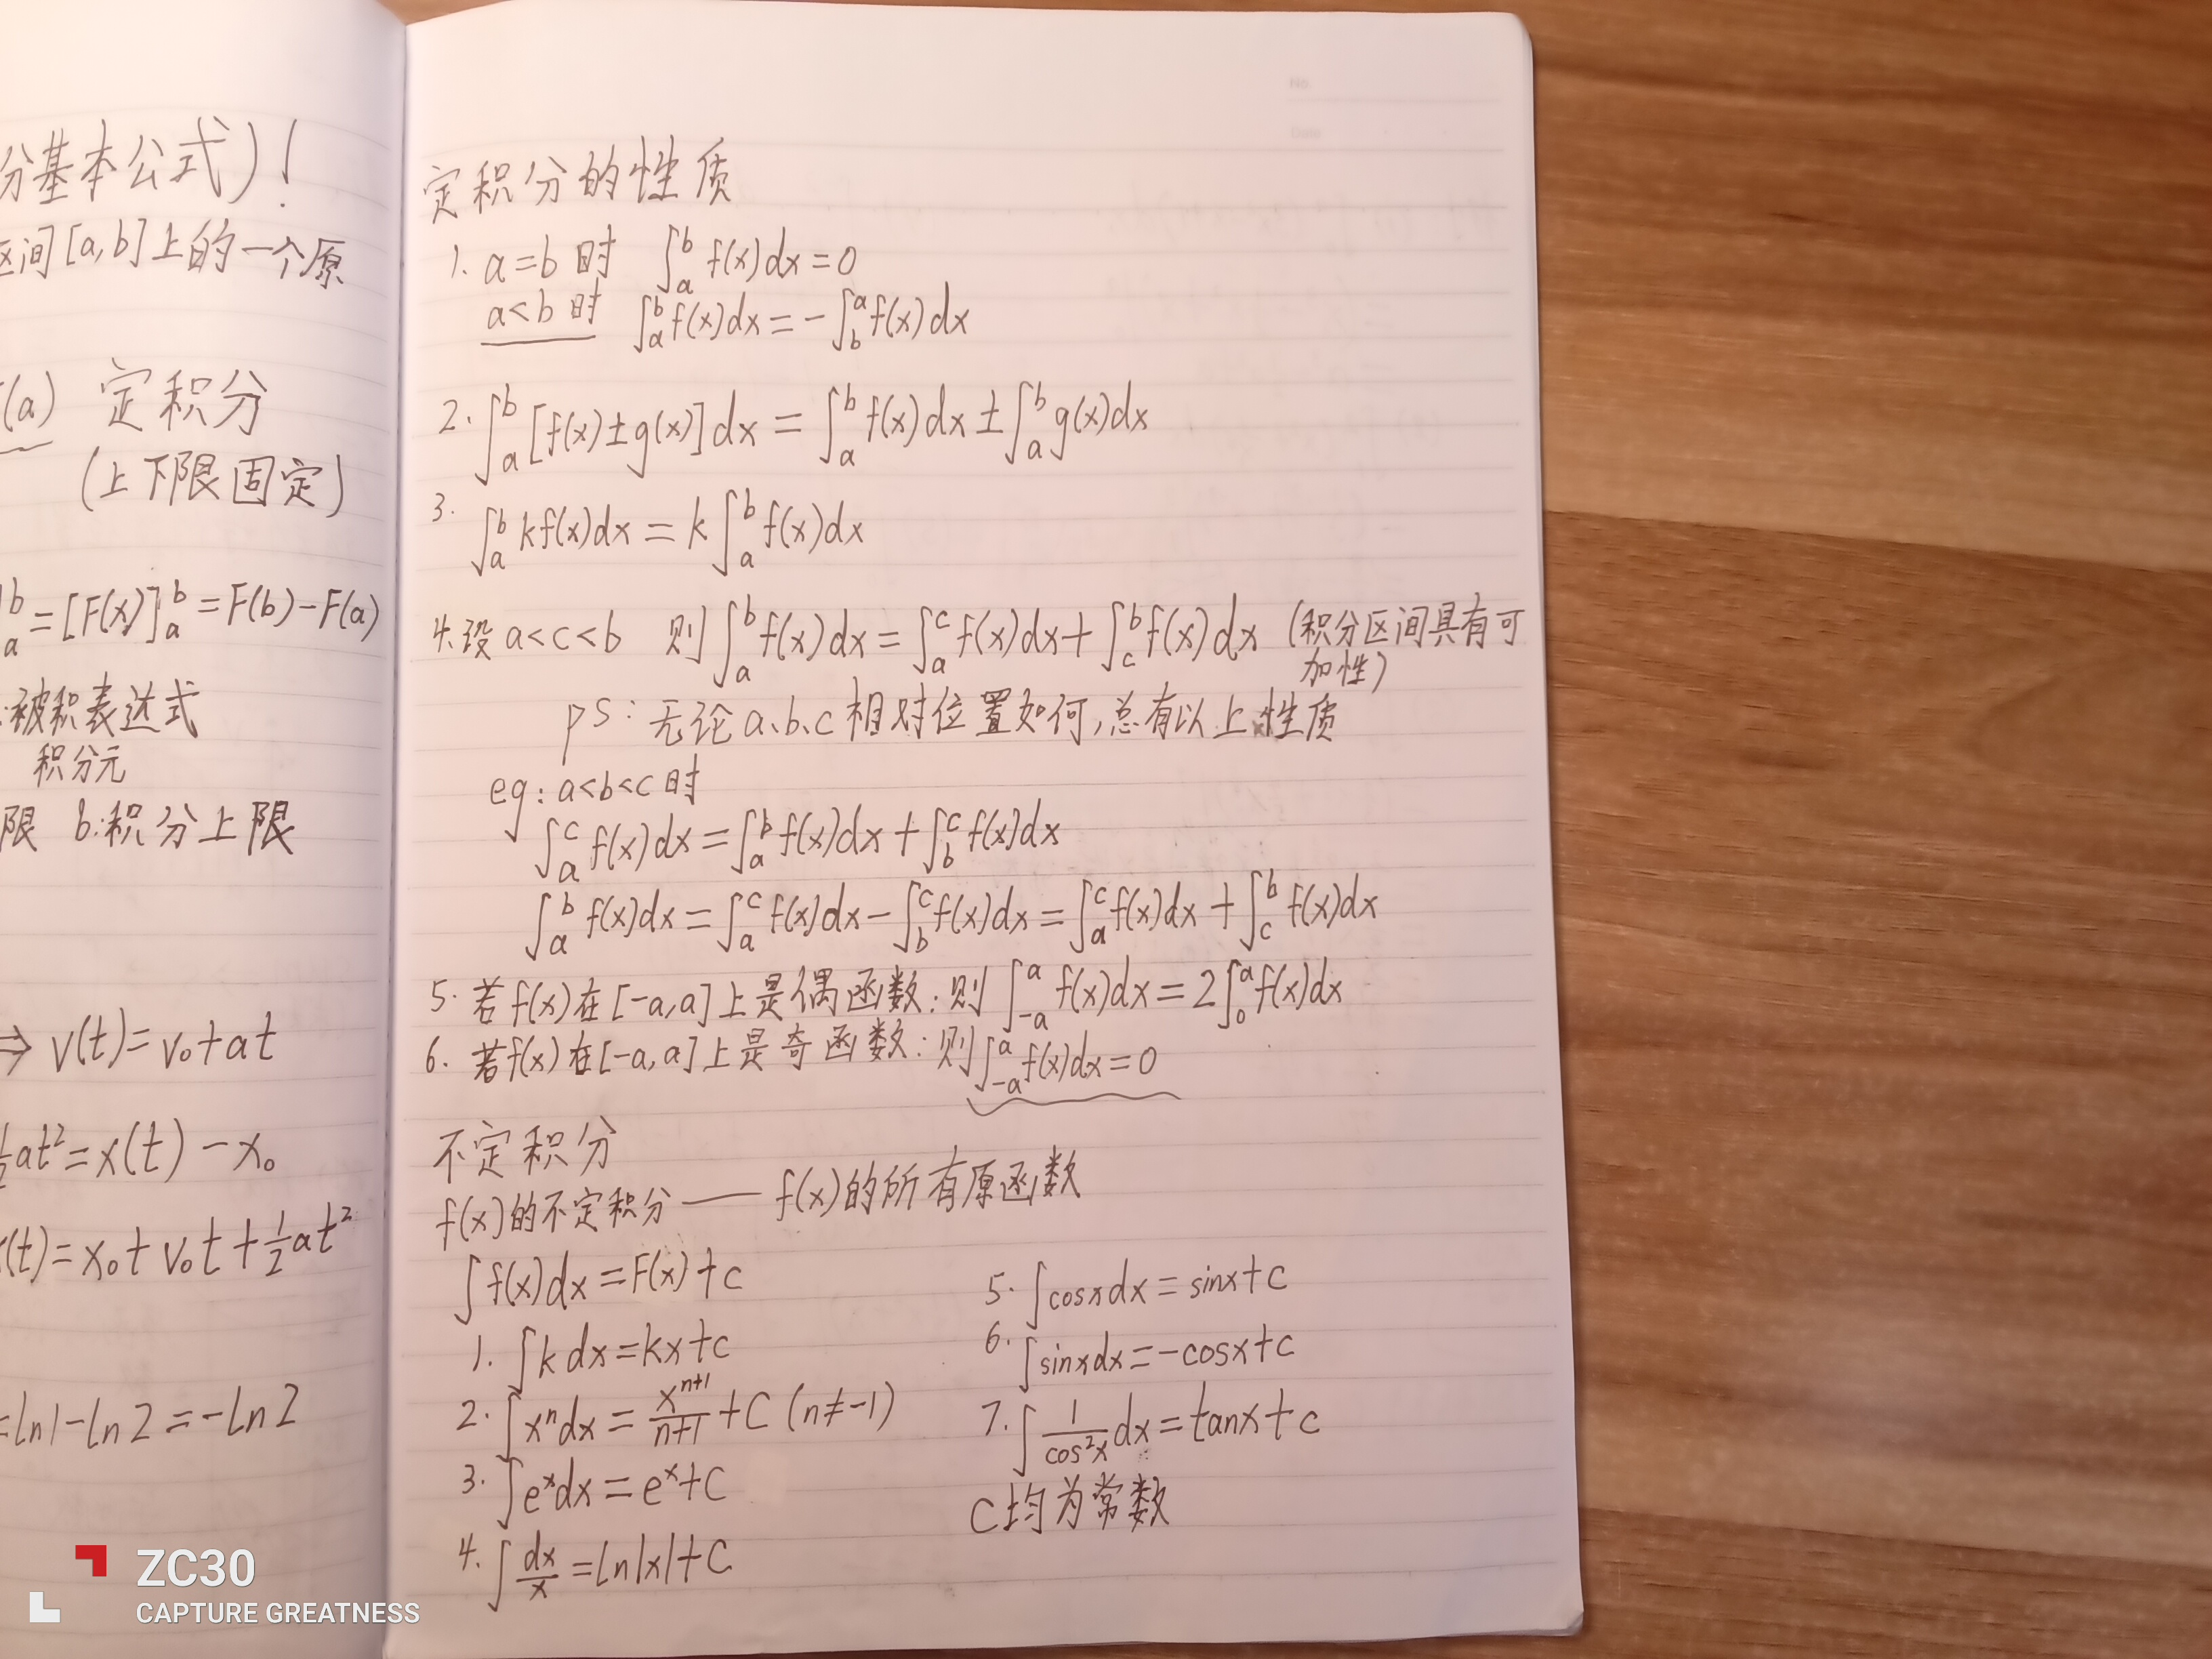 分基本公式)!
区间[a,b]上的一个原
(a) 定积分
(上下限固定)
|ᵇₐ=[F(x)]ᵇₐ=F(b)-F(a)
:被积表达式
积分元
限 b:积分上限
⇒ v(t)=v₀+at
½at²=x(t)-x₀
(t)=x₀+v₀t+½at²
=ln1-ln2=-ln2
No.
Date
定积分的性质
1. a=b 时 ∫ₐᵇ f(x)dx=0
a<b 时 ∫ₐᵇf(x)dx=-∫_b^a f(x)dx
2. ∫ₐᵇ[f(x)±g(x)]dx=∫ₐᵇf(x)dx±∫ₐᵇg(x)dx
3. ∫ₐᵇkf(x)dx=k∫ₐᵇf(x)dx
4.设a<c<b 则∫ₐᵇf(x)dx=∫_a^c f(x)dx+∫_c^b f(x)dx (积分区间具有可
加性)
ps:无论a、b、c相对位置如何,总有以上性质
eg:a<b<c时
∫_a^c f(x)dx=∫_a^b f(x)dx+∫_b^c f(x)dx
∫_a^b f(x)dx=∫_a^c f(x)dx-∫_b^c f(x)dx=∫_a^c f(x)dx+∫_c^b f(x)dx
5. 若f(x)在[-a,a]上是偶函数:则∫_{-a}^a f(x)dx=2∫_0^a f(x)dx
6. 若f(x)在[-a,a]上是奇函数:则∫_{-a}^a f(x)dx=0
不定积分
f(x)的不定积分——f(x)的所有原函数
∫f(x)dx=F(x)+c
1. ∫k dx=kx+c
2. ∫xⁿdx=x^{n+1}/(n+1)+C (n≠-1)
3. ∫eˣdx=eˣ+C
4. ∫dx/x=ln|x|+C
5. ∫cosxdx=sinx+c
6. ∫sinxdx=-cosx+c
7. ∫1/cos²x dx=tanx+c
C均为常数
ZC30
CAPTURE GREATNESS